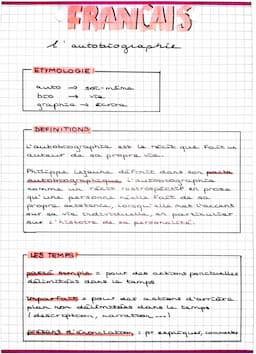 FRANÇAIS
l'autobiographie
ETYMOLOGIE
auto → soi-même
bio → vie
graphie → écrire
DEFINITIONS
L'autobiographie est le récit que fait un
auteur de sa propre vie.
Philippe Lejeune définit dans son pacte
autobiographique l'autobiographie
comme un récit rétrospectif en prose
qu'une personne réelle fait de sa
propre existence, lorsqu'elle met l'accent
sur sa vie individuelle, en particulier
sur l'histoire de sa personalité.
LES TEMPS
passé simple = pour des actions ponctuelles
délimitées dans le temps
imparfait = pour des actions d'arrière
plan non délimitées dans le temps
(description, narration...)
présent d'énonciation : pr expliquer, commenter